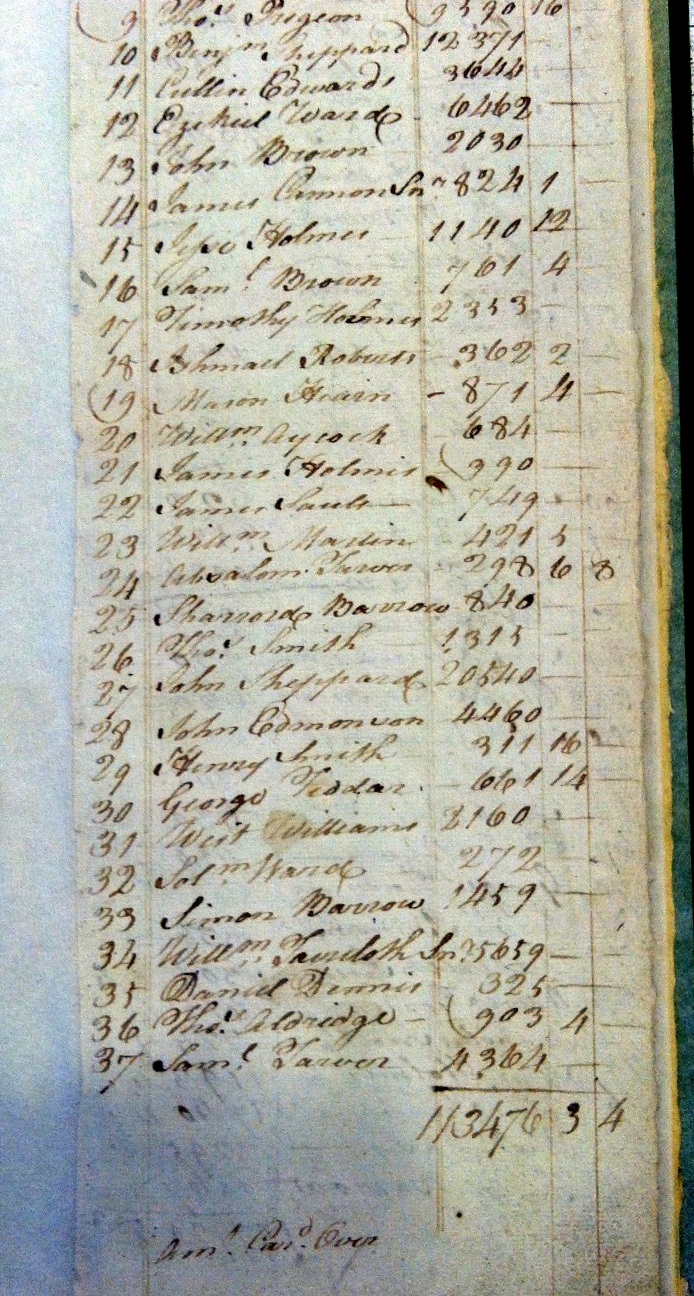 9 Thos. Pugeon 9590 16
10 Benjm Sheppard 12371 —
11 Cullin Edwards 3644 —
12 Ezekiel Ward 6462 —
13 John Brown 2030 —
14 James Cannon Snr 824 1 —
15 Jesse Holmes 1140 12 —
16 Saml. Brown 761 4 —
17 Timothy Holmes 2353 —
18 Ishmael Roberts — 362 2 —
19 Mason Hearn — 871 4 —
20 Willm. Aycock 684 —
21 James Holmes 990 —
22 James Sauls — 749 —
23 Willm. Martin 421 5 —
24 Absalom Tarver - 298 6 8
25 Sharrord Barrow 840 —
26 Thos. Smith 1315 —
27 John Sheppard 20540 —
28 John Edmonson 4460 —
29 Henry Smith 311 16 —
30 George 661 14 —
31 West Williams 2160 —
32 Solm Ward 272 —
33 Simon Barrow 1459 —
34 Willm. Snr. 5659 —
35 Daniel Dennis 325 —
36 Thos. Aldridge — 903 4 —
37 Saml. Tarver 4364 —
113476 3 4
Amt. Card. Over